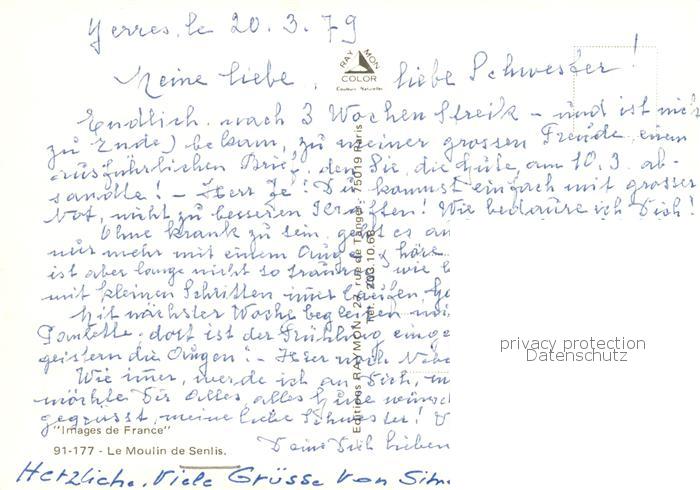 Yerres, le 20.3.79
Meine liebe, liebe Schwester!
Endlich nach 3 Wochen Streik - und ist nicht
zu Ende) bekam, zu meiner grossen Freude einen
ausführlichen Brief, den Sie, die Gute, am 10.3. ab-
sandte! - Herr Je! Du kommst einfach mit grosser
Not, nicht zu besseren Kräften! Wie bedaure ich Dich!
Ohne krank zu sein, geht es
nur mehr mit einem Auge, höre
ist aber lange nicht so traurig wie
mit kleinen Schritten laufen,
Mit nächster Woche begleiten
Paulette, dort ist der Frühling
geistern die Augen! - Hier noch
Wie imer, werde ich an Dich,
möchte Dir alles, alles Gute
gegrüsst, meine liebe Schwester!
Deine Dich lieben
Herzliche, Viele Grüsse von
RAYMON
COLOR
Couleurs Naturelles
Editions RAYMON - 27, rue de Tanger - 75019 Paris
Tél. 203.10.68
"Images de France"
91-177 - Le Moulin de Senlis.
privacy protection
Datenschutz